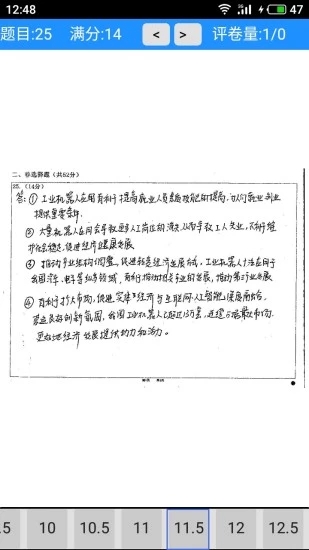 12:48 47
题目:25 满分:14 < > 评卷量:1/0
二、非选择题（共52分）
25.（14分）
答：① 工业机器人应用有利于提高就业人员素质技能的提高，为就业创业
提供重要条件。
② 大量机器人应用会导致更多人工岗位的流失，从而导致工人失业，不利于维
护社会稳定，促进经济健康发展
③ 推动产业结构调整，促进制造经济发展方式，工业机器人广泛应用于
我国汽车、电子等多领域，有利于推动相关产业的发展，推动第三产业发展
④ 有利于扩大市场，促进实体经济与互联网、人工智能深度融合。
营造良好创新氛围，我国工业机器人已超过13万套，连续六年最大市场，
更好地经济发展提供动力和活力。
.5 10 10.5 11 11.5 12 12.5